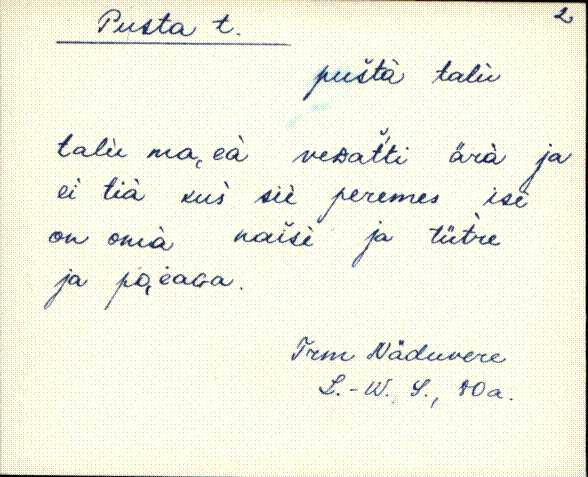 Pusta t.
2
puštà talù
talù ma,eà veᴅatti ärà ja
ei tià kus̀ siè peremes isè
on omà naisè ja tütre
ja po,eaɢa.
Trm Näduvere
L.-W. S., 80a.